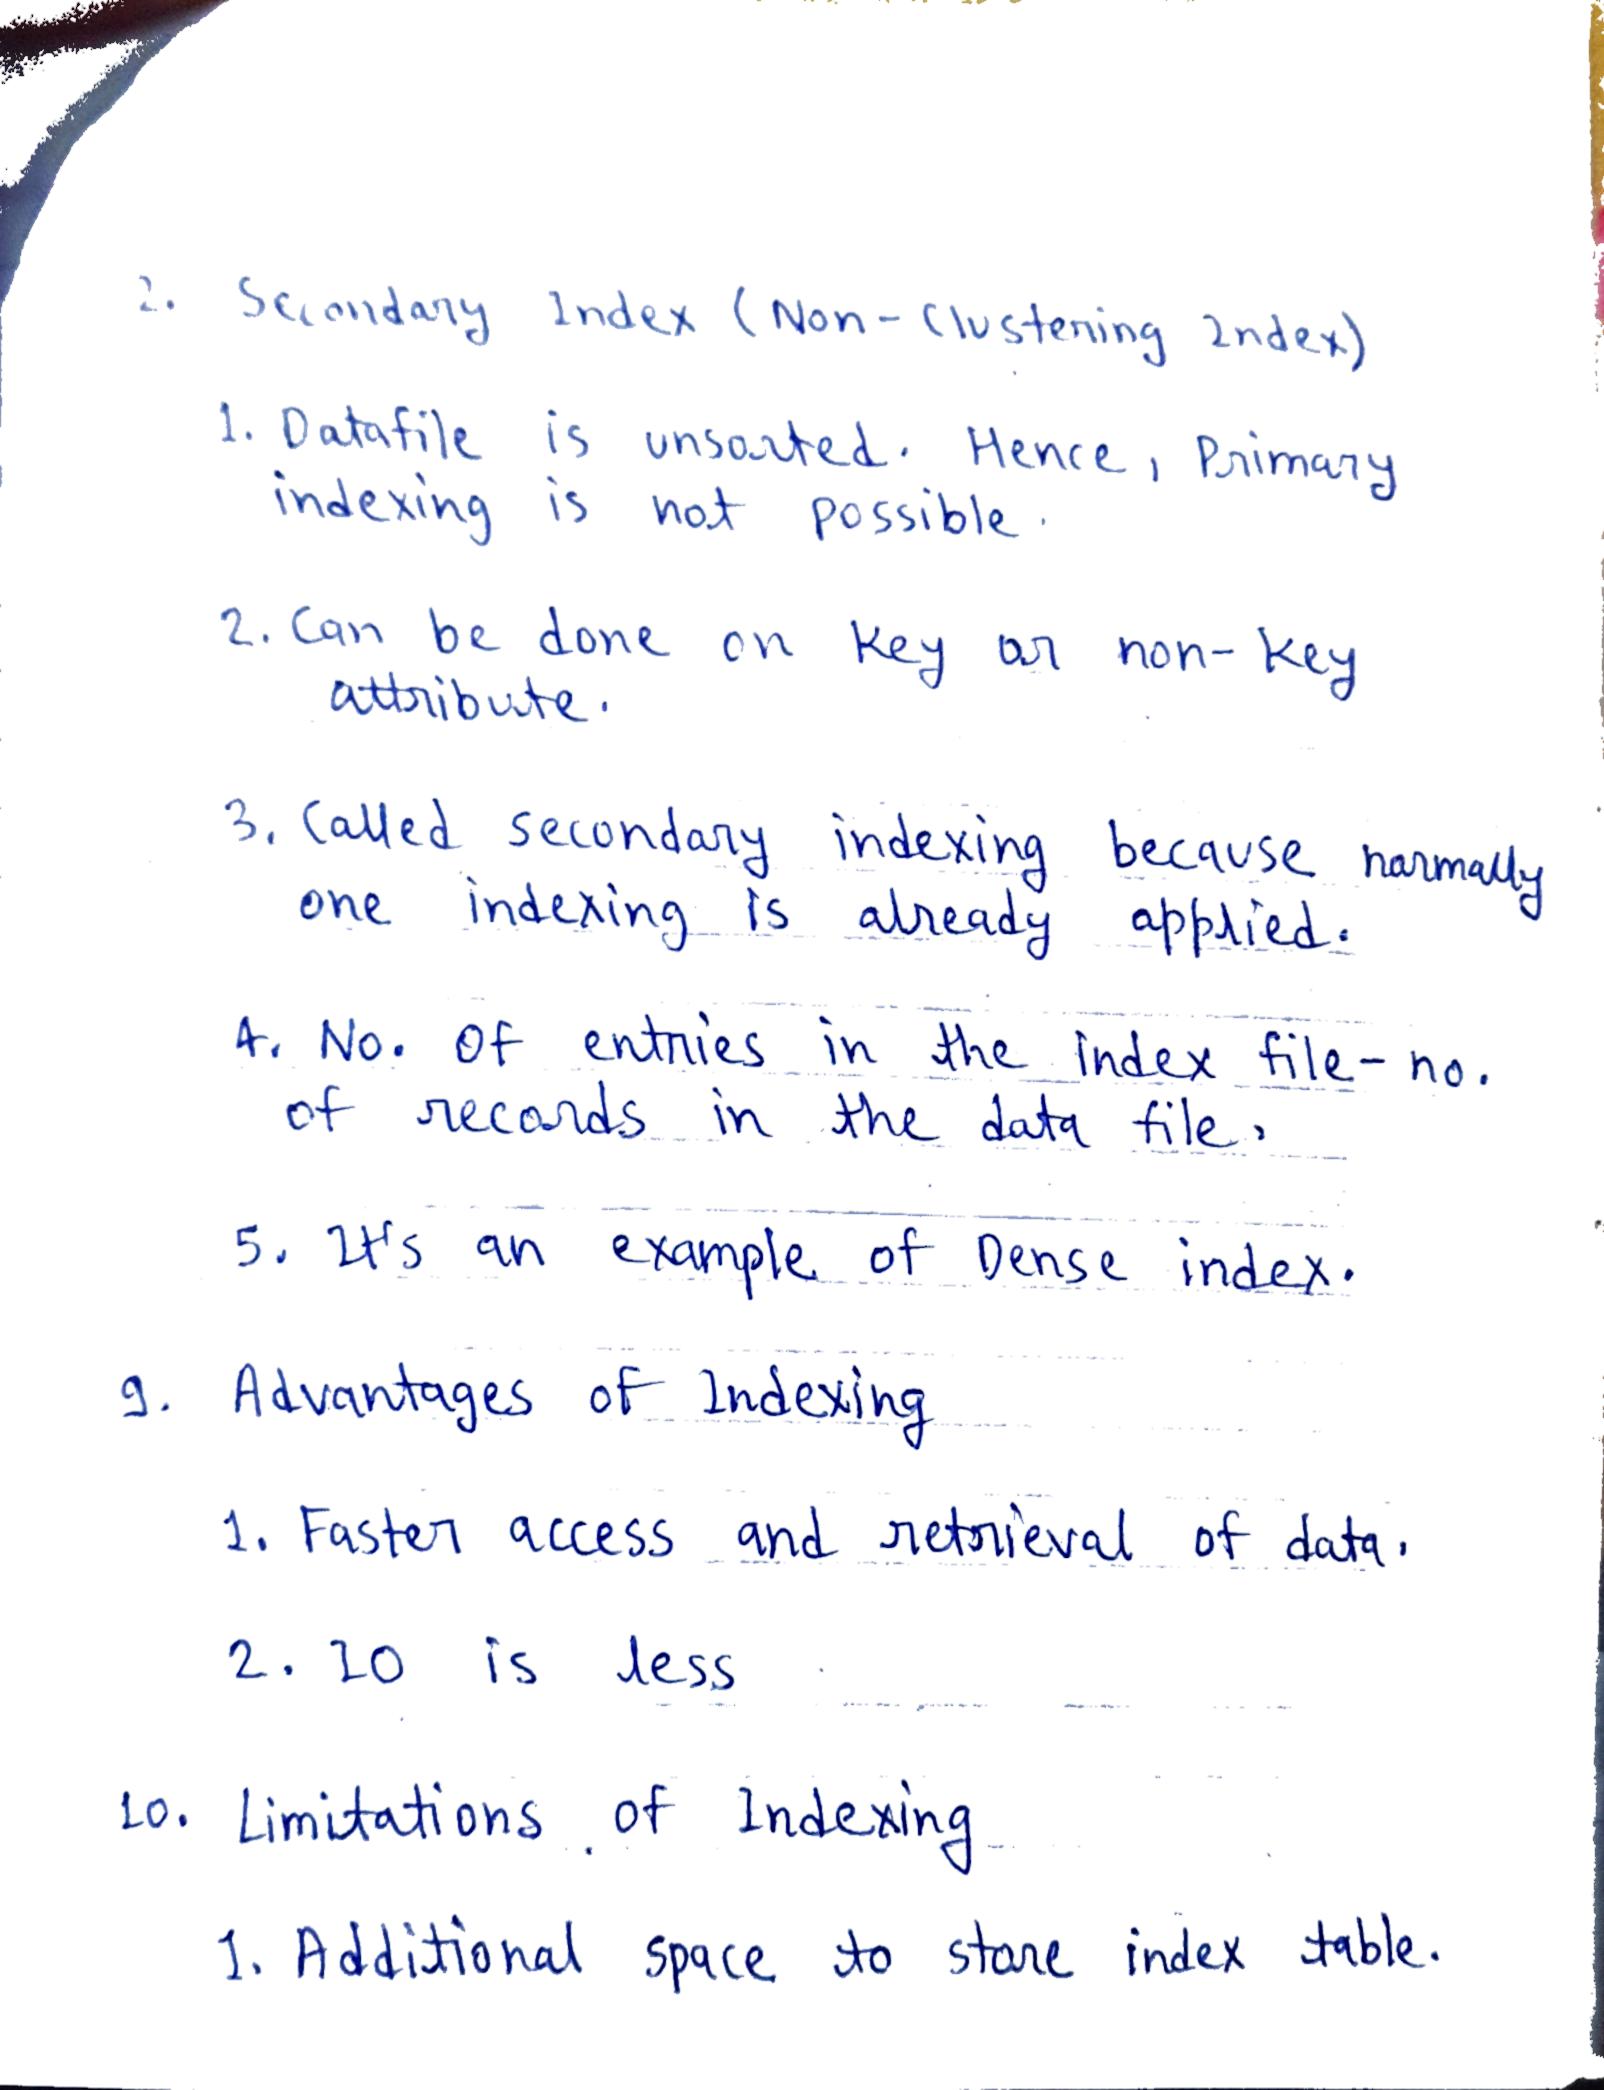 2. Secondary Index (Non-Clustering Index)
1. Datafile is unsorted. Hence, Primary
indexing is not possible.
2. Can be done on key or non-key
attribute.
3. Called secondary indexing because normally
one indexing is already applied.
4. No. of entries in the index file - no.
of records in the data file.
5. It's an example of Dense index.
9. Advantages of Indexing
1. Faster access and retrieval of data.
2. IO is less
10. Limitations of Indexing
1. Additional space to store index table.